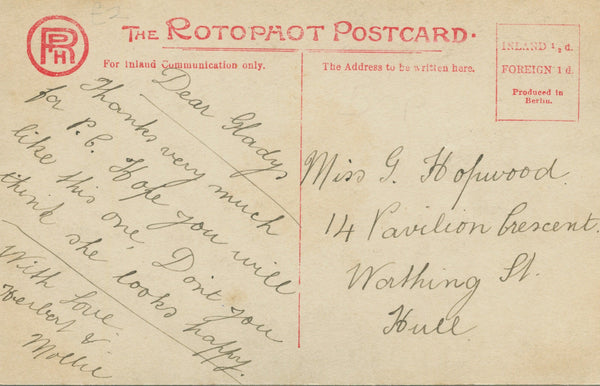 RPH
THE ROTOPHOT POSTCARD.
For Inland Communication only.
The Address to be written here.
INLAND ½ d.
FOREIGN 1 d.
Produced in
Berlin.
Dear Gladys
Thanks very much
for P.C. Hope you will
like this one, Don't you
think she looks happy.
With Love
Herbert &
Mollie
Miss G. Hopwood.
14 Pavilion Crescent.
Worthing St.
Hull